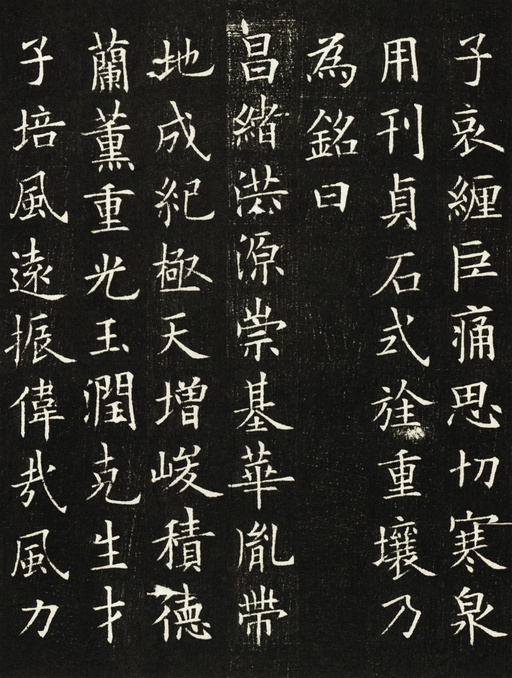 子哀纏臣痛思切寒泉
用刊貞石式旌重壤乃
為銘曰
昌緒洪源崇基華胤帶
地成紀極天增峻積德
蘭薰重光玉潤克生才
子培風遠振偉哉風力